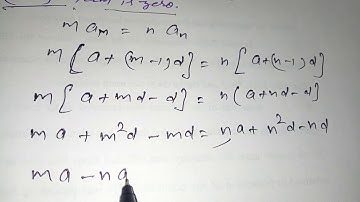 is zero.
m aₘ = n aₙ
m [ a + (m-1) d ] = n [ a + (n-1) d ]
m [ a + md - d ] = n ( a + nd - d ]
ma + m²d - md = na + n²d - nd
ma - na